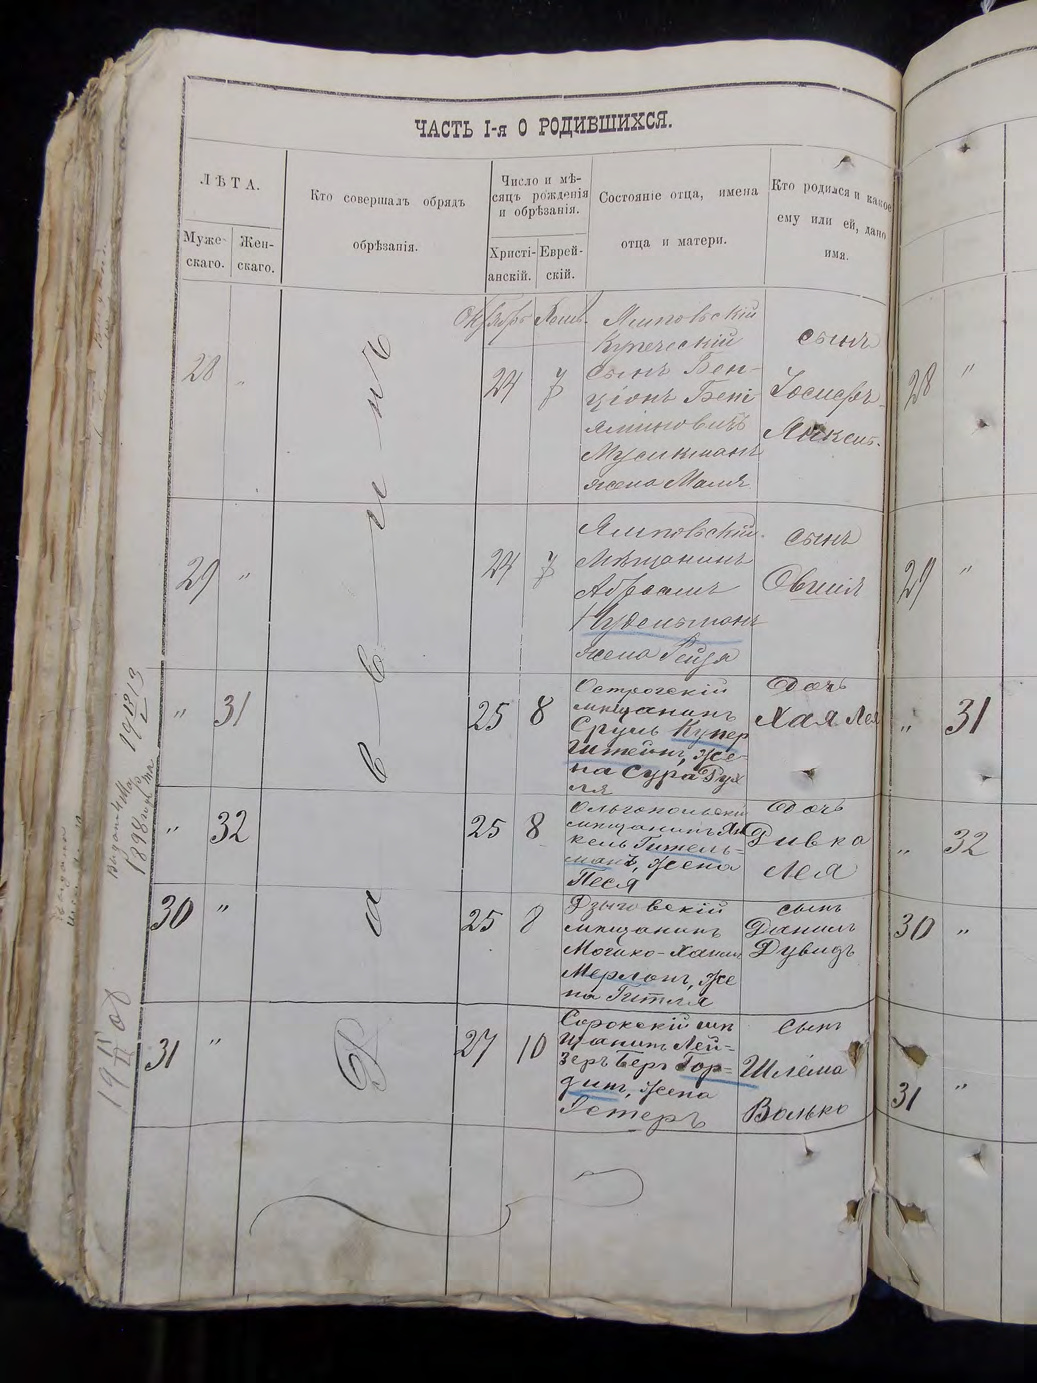 ЧАСТЬ I-я О РОДИВШИХСЯ.
ЛѢТА.
Муже-
скаго.
Жен-
скаго.
Кто совершалъ обрядъ
обрѣзанія.
Число и мѣ-
сяцъ рожденія
и обрѣзанія.
Христі-
анскій.
Еврей-
скій.
Состояніе отца, имена
отца и матери.
Кто родился и какое
ему или ей, дано
имя.
Октябрь
28 " 24 7
Ямповскій
Купеческій
сынъ Бен-
ціонъ Бені-
яминовичъ
Мусикманъ
жена Маля
сынъ
Іосифъ-
Янкель.
28 "
29 " 24 7
Ямповскій
Мѣщанинъ
Абрамъ
Нудельманъ
жена Рейзя
сынъ
Овшія
29 "
" 31 25 8
Острогскій
мѣщанинъ
Сруль Купер
штейнъ, же-
на Сура Рух
ля
дочь
Хая Лея
" 31
" 32 25 8
Ольгопольскій
мѣщанинъ Ян
кель Гительъ-
манъ, жена
Песя
дочь
Ривка
Лея
" 32
30 " 25 8
Дзыговскій
мѣщанинъ
Мошко-Хаимъ
Мерлонъ, же
на Гитля
сынъ
Даниль
Дувидъ
30 "
31 " 27 10
Сорокскій мѣ
щанинъ Лей-
зеръ Беръ Гор-
динъ, жена
Эстеръ
сынъ
Шлёма
Волько
31 "
Раввинъ